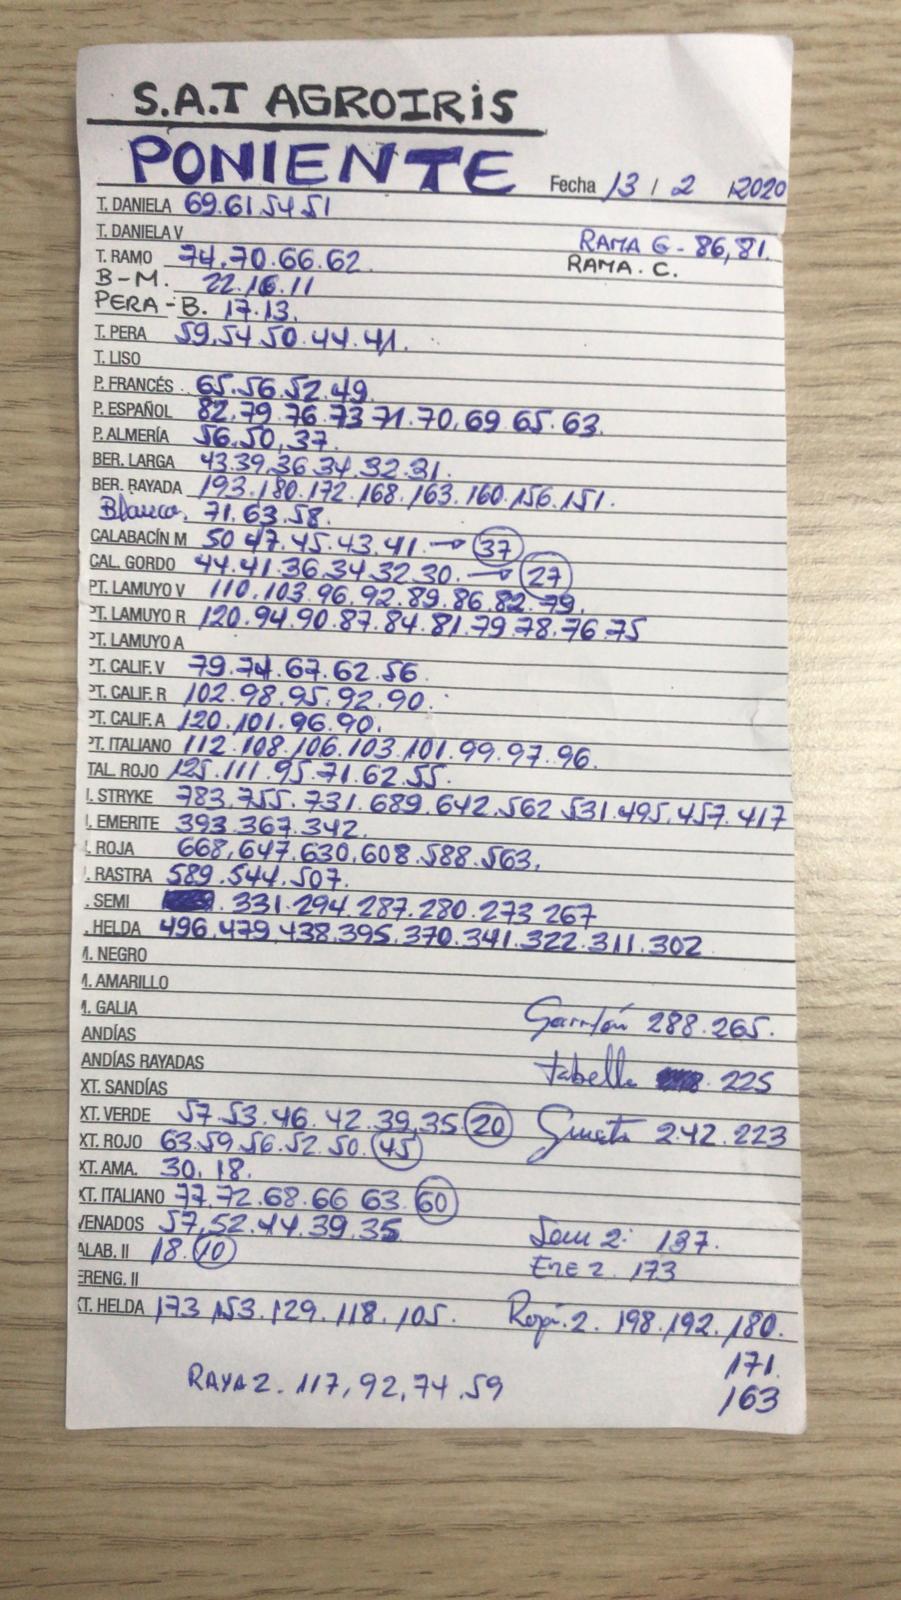 S.A.T AGROIRIS
PONIENTE Fecha 13 / 2 /2020
T. DANIELA 69.61.54.51
T. DANIELA V RAMA G - 86,81.
T. RAMO 74.70.66.62. RAMA. C.
B-M. 22.16.11
PERA-B. 17.13.
T. PERA 59.54.50.44.41.
T. LISO
P. FRANCÉS 65.56.52.49
P. ESPAÑOL 82.79.76.73 71.70,69.65.63.
P. ALMERÍA 56,50,37.
BER. LARGA 43.39,36.34.32.31.
BER. RAYADA 193.180.172.168.163.160.156.151.
Blanca, 71.63.58.
CALABACÍN M 50 47.45.43.41.→ 37
CAL. GORDO 44.41.36.34.32.30.→ 27
PT. LAMUYO V 110.103.96,92.89.86.82.79.
PT. LAMUYO R 120.94.90.87.84.81.79.78.76.75
PT. LAMUYO A
PT. CALIF. V 79.74.67.62.56.
PT. CALIF. R 102.98.95.92.90.
PT. CALIF. A 120.101.96.90.
PT. ITALIANO 112.108.106.103.101.99.97.96.
TAL. ROJO 125.111.95.71.62.55.
I. STRYKE 783.755.731.689.642.562 531.495.457.417
I. EMERITE 393.367.342.
. ROJA 668,647.630,608.588.563.
. RASTRA 589.544.507.
. SEMI . 331.294.287.280.273 267
. HELDA 496.479.438.395.370.341.322.311.302
M. NEGRO
M. AMARILLO
M. GALIA Garrfón 288.265.
ANDÍAS
ANDÍAS RAYADAS tabella . 225
XT. SANDÍAS
XT. VERDE 57.53.46.42.39,35 20 242.223
XT. ROJO 63.59.56.52.50. 45
XT. AMA. 30.18.
XT. ITALIANO 77.72.68.66 63. 60
VENADOS 57,52.44.39.35 Sem 2: 137.
ALAB. II 18. 10 EME 2. 173
ERENG. II
XT. HELDA 173.153.129.118.105. Roja.2. 198.192.180.
171.
RAYA2. 117,92,74.59 163